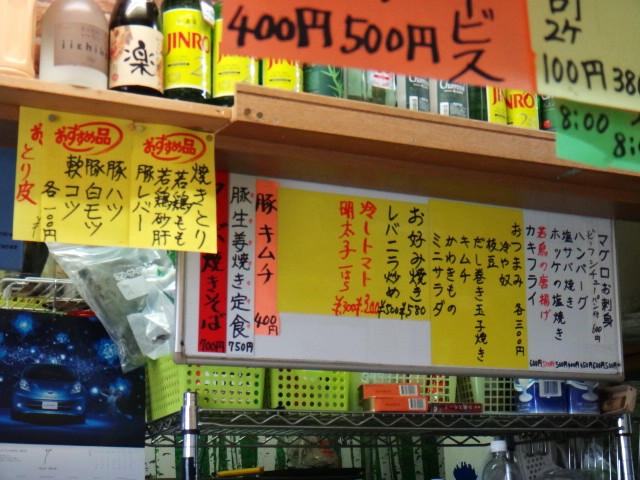 iichiko
楽
JINRO
JINRO
400円
500円
ービス
2ケ
100円
380
8:00
とり皮
おすすめ品
豚ハツ
豚白モツ
軟コツ
各一〇〇
おすすめ品
焼きとり
若鶏もも
若鶏砂肝
豚レバー
マグロお刺身
ハンバーグ
塩サバ焼き
ホッケの塩焼き
若鶏の唐揚げ
カキフライ
おつまみ 各三〇〇円
冷や奴
枝豆
だし巻き玉子焼き
キムチ
かわきもの
ミニサラダ
お好み焼き ¥580
レバニラ炒め ¥500
冷しトマト
明太子
豚キムチ 400円
豚生姜焼き定食 750円
焼きそば 700円